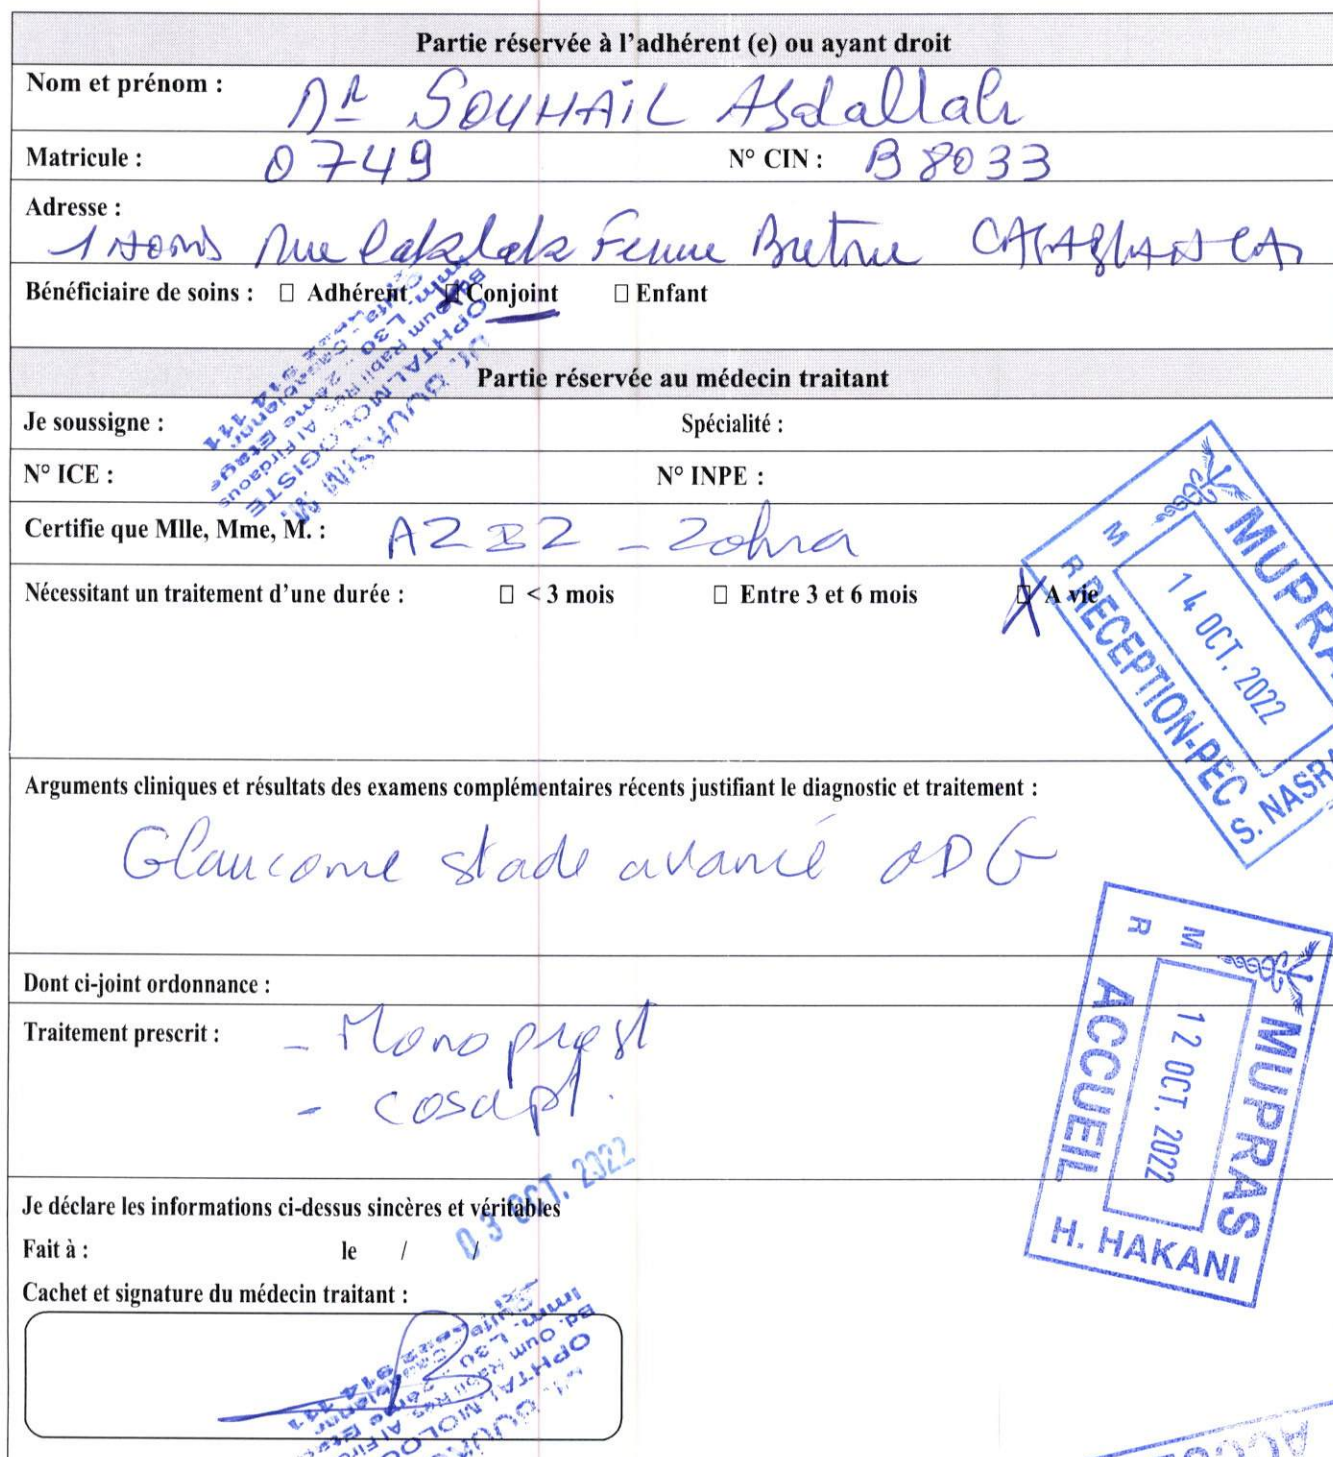 Partie réservée à l'adhérent (e) ou ayant droit
Nom et prénom : Dr SOUHAIL Abdallah
Matricule : 0749 N° CIN : B 8033
Adresse :
Rue Ferme Bretonne CASABLANCA
Bénéficiaire de soins : ☐ Adhérent ☒ Conjoint ☐ Enfant
OPHTALMOLOGISTE
Partie réservée au médecin traitant
Je soussigne : Spécialité :
N° ICE : N° INPE :
Certifie que Mlle, Mme, M. : AZIZ - Zohra
Nécessitant un traitement d'une durée : ☐ < 3 mois ☐ Entre 3 et 6 mois ☒ A vie
MUPRAS
14 OCT. 2022
RECEPTION-PEC
Arguments cliniques et résultats des examens complémentaires récents justifiant le diagnostic et traitement :
Glaucome stade avancé ODG
MUPRAS
12 OCT. 2022
ACCUEIL
H. HAKANI
Dont ci-joint ordonnance :
Traitement prescrit : - Monoprost
- cosopt.
03 OCT. 2022
Je déclare les informations ci-dessus sincères et véritables
Fait à : le / /
Cachet et signature du médecin traitant :